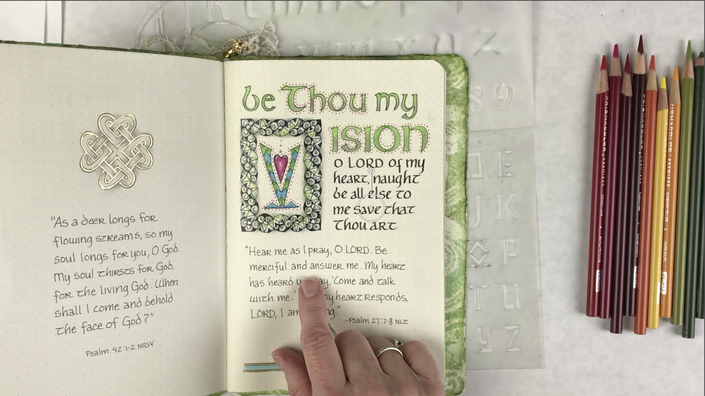 "As a deer longs for
flowing streams, so my
soul longs for you, O God.
My soul thirsts for God,
for the living God. When
shall I come and behold
the face of God?"
Psalm 42:1-2 NRSV
be Thou my
VISION
O LORD of my
heart, naught
be all else to
me save that
Thou art
"Hear me as I pray, O LORD. Be
merciful and answer me. My heart
has heard say, 'Come and talk
with me.' my heart responds,
LORD, I am
-Psalm 27:7-8 NLT